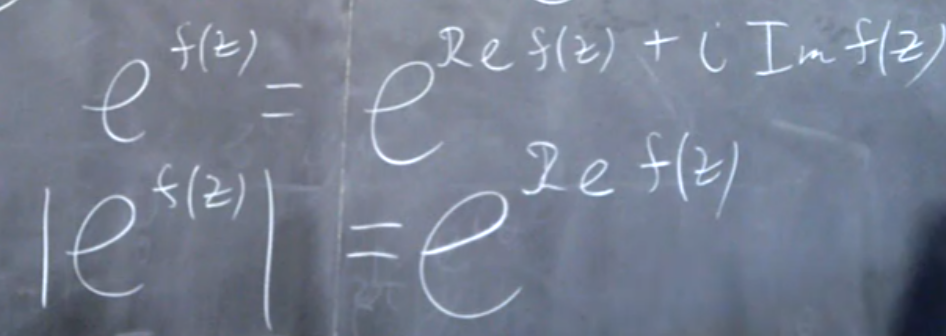 e^{f(z)} = e^{Re f(z) + i Im f(z)}
|e^{f(z)}| = e^{Re f(z)}